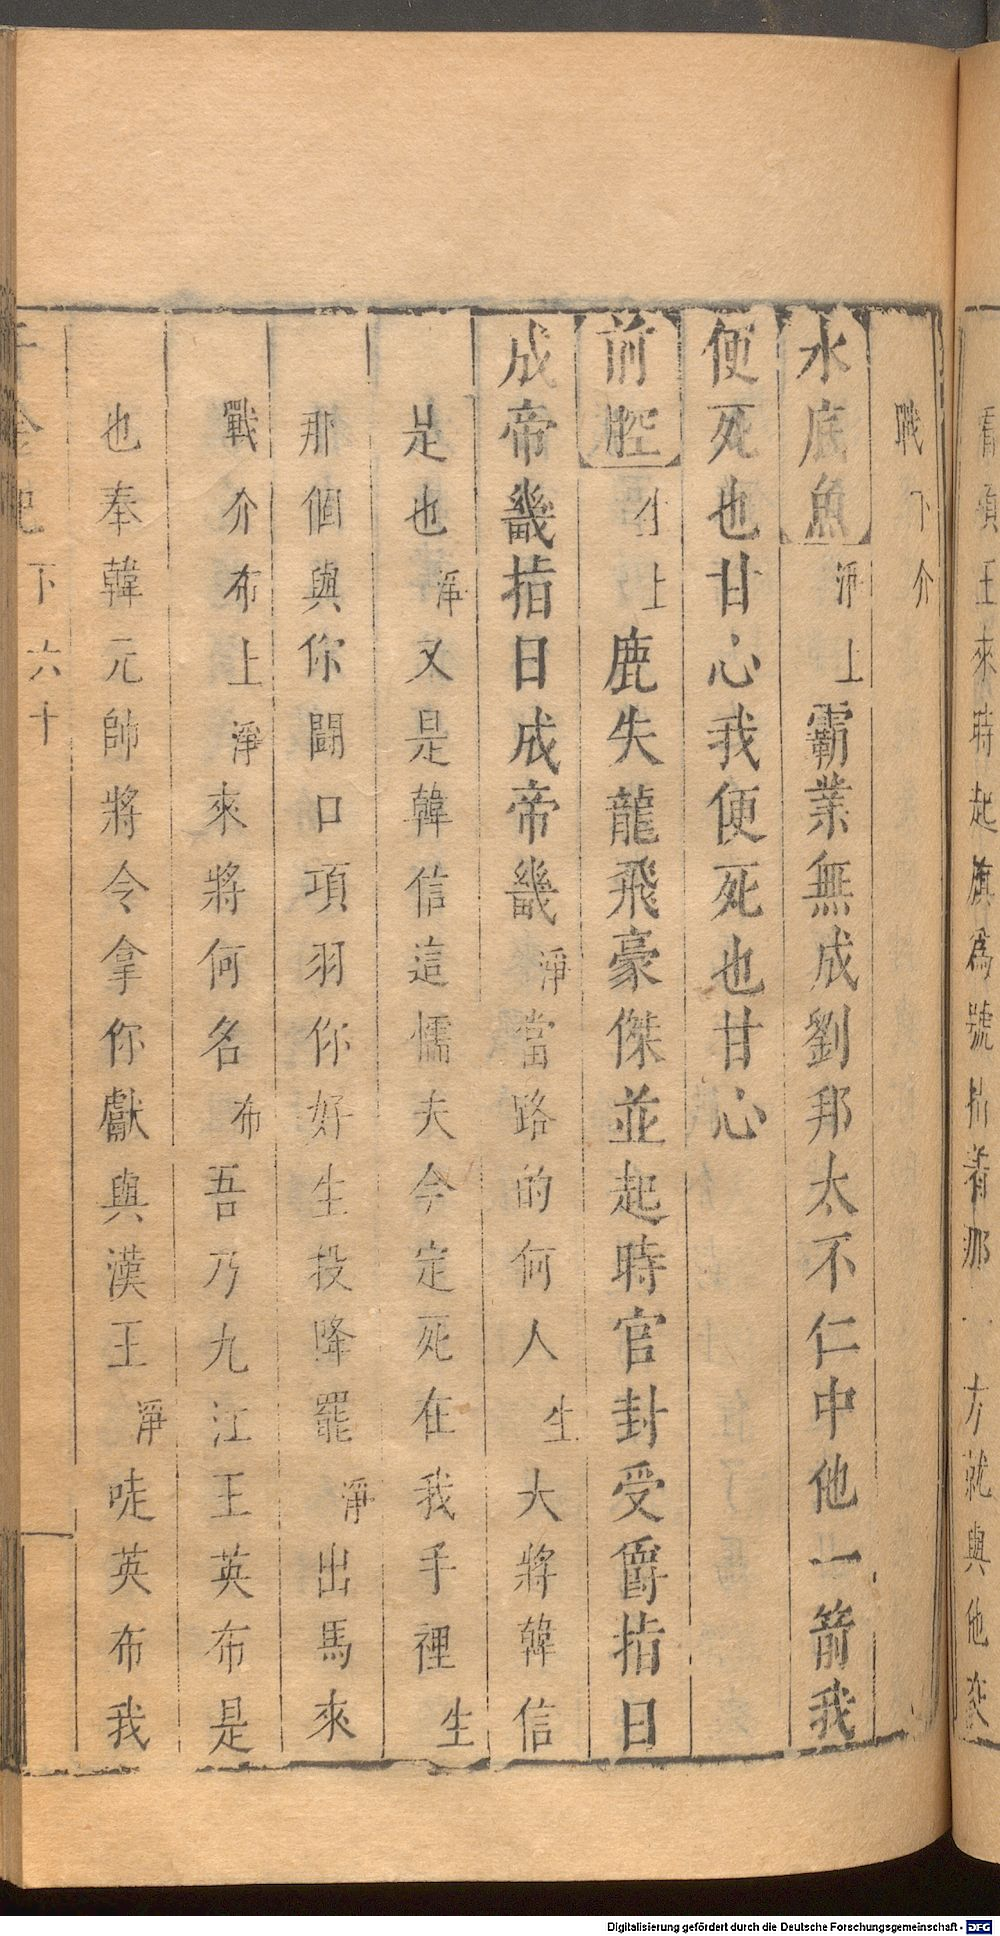 看項王來時起旗爲號指着那一方就與他交
戰下介
水底魚淨上霸業無成劉邦太不仁中他一箭我
便死也甘心我便死也甘心
前腔生上鹿失龍飛豪傑並起時官封受爵指日
成帝畿指日成帝畿淨當路的何人生大將韓信
是也淨又是韓信這懦夫今定死在我手裡生
那個與你鬪口項羽你好生投降罷淨出馬來
戰介布上淨來將何名布吾乃九江王英布是
也奉韓元帥將令拿你獻與漢王淨哇英布我
千金記下六十
Digitalisierung gefördert durch die Deutsche Forschungsgemeinschaft - DFG